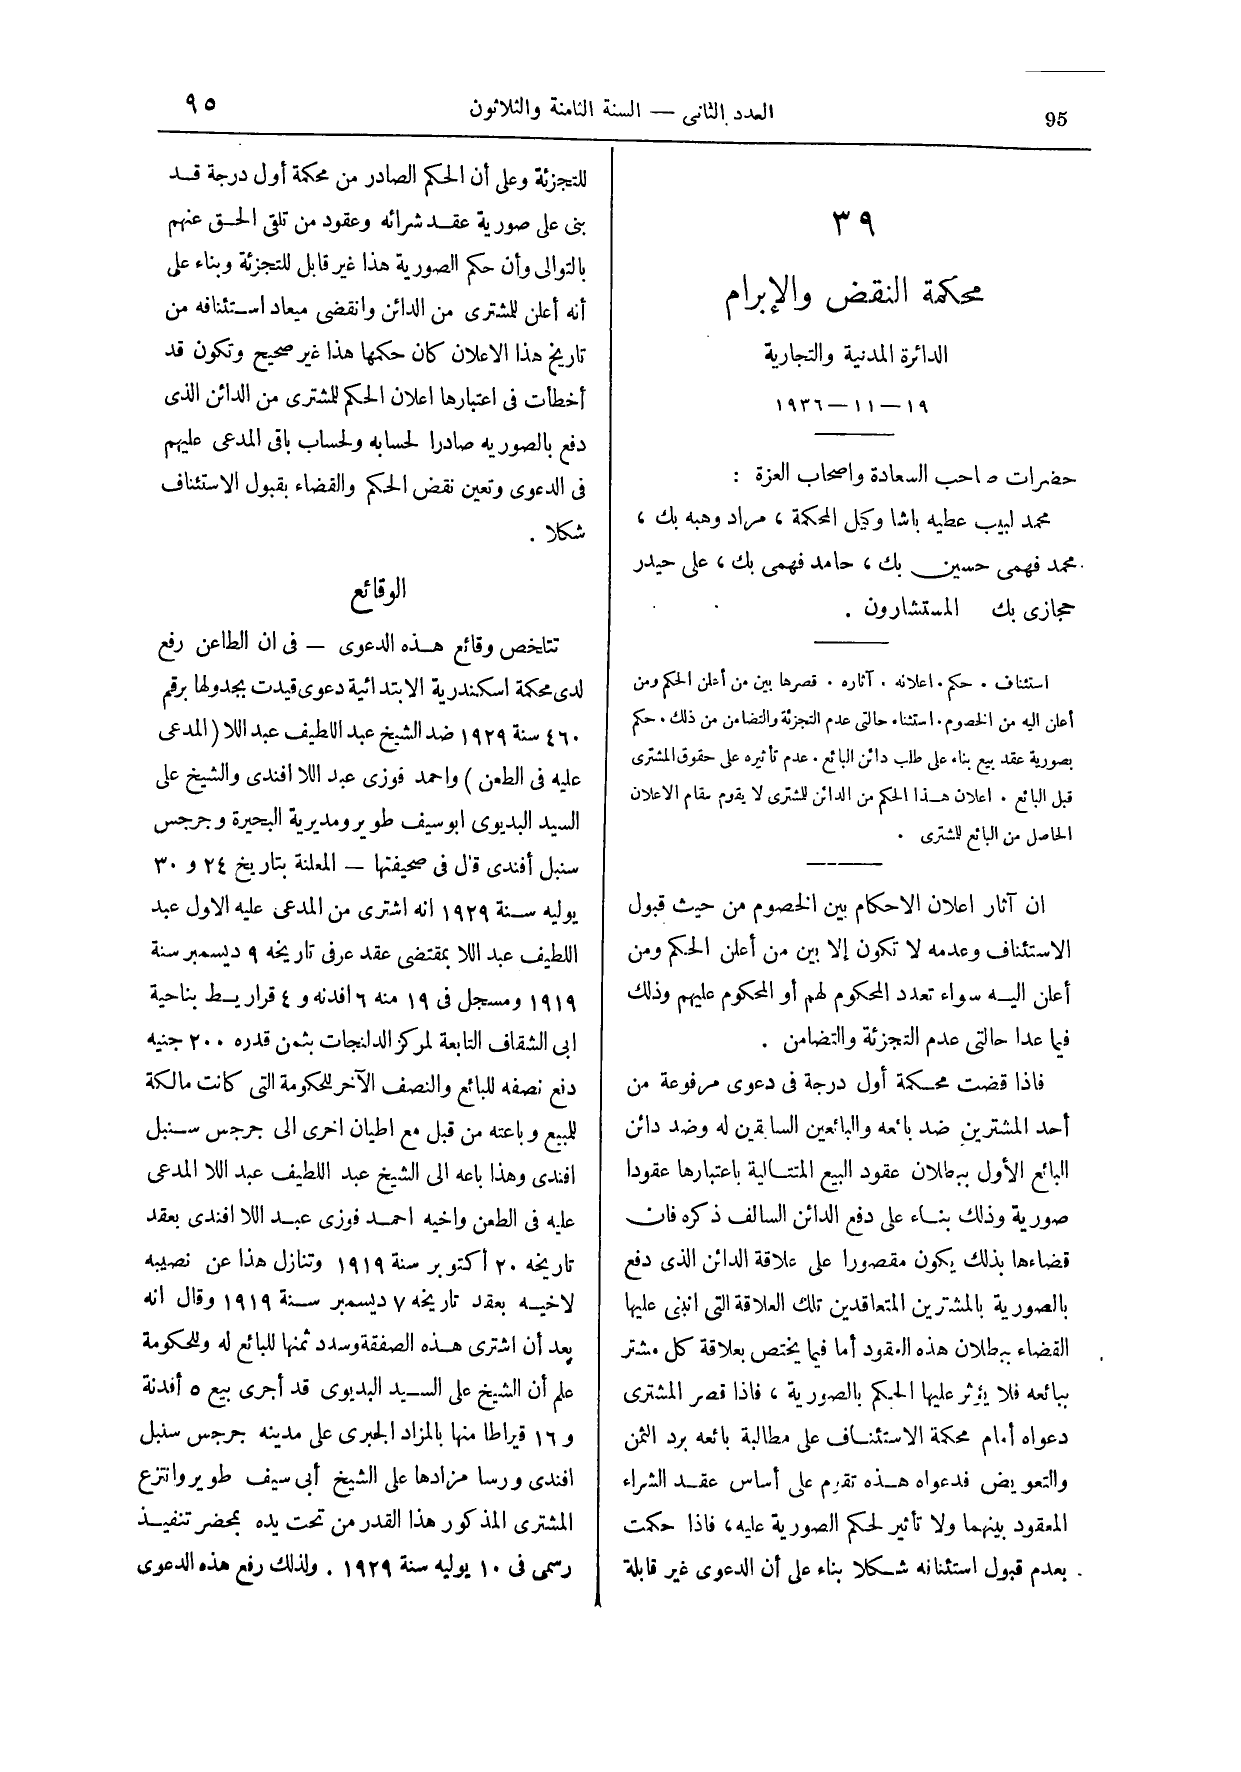 95
العدد الثانى — السنة الثامنة والثلاثون
٩٥
٣٩
محكمة النقض والإبرام
الدائرة المدنية والتجارية
١٩ — ١١ — ١٩٣٦
حضرات صاحب السعادة واصحاب العزة :
محمد لبيب عطيه باشا وكيل المحكمة ، مراد وهبه بك ،
محمد فهمى حسين بك ، حامد فهمى بك ، على حيدر
حجازى بك المستشارون .
استئناف . حكم . اعلانه . آثاره . قصرها بين من أعلن الحكم ومن
أعلن اليه من الخصوم . استثناء حالتى عدم التجزئة والتضامن من ذلك . حكم
بصورية عقد بيع بناء على طلب دائن البائع . عدم تأثيره على حقوق المشترى
قبل البائع . اعلان هذا الحكم من الدائن للمشترى لا يقوم مقام الاعلان
الحاصل من البائع للمشترى .
ان آثار اعلان الاحكام بين الخصوم من حيث قبول
الاستئناف وعدمه لا تكون إلا بين من أعلن الحكم ومن
أعلن اليه سواء تعدد المحكوم لهم أو المحكوم عليهم وذلك
فيما عدا حالتى عدم التجزئة والتضامن .
فاذا قضت محكمة أول درجة فى دعوى مرفوعة من
أحد المشترين ضد بائعه والبائعين السابقين له وضد دائن
البائع الأول ببطلان عقود البيع المتتالية باعتبارها عقودا
صورية وذلك بناء على دفع الدائن السالف ذكره فان
قضاءها بذلك يكون مقصورا على علاقة الدائن الذى دفع
بالصورية بالمشترين المتعاقدين تلك العلاقة التى انبنى عليها
القضاء ببطلان هذه العقود أما فيما يختص بعلاقة كل مشتر
ببائعه فلا يؤثر عليها الحكم بالصورية ، فاذا قصر المشترى
دعواه أمام محكمة الاستئناف على مطالبة بائعه برد الثمن
والتعويض فدعواه هذه تقوم على أساس عقد الشراء
المعقود بينهما ولا تأثير لحكم الصورية عليه ، فاذا حكمت
بعدم قبول استئنافه شكلا بناء على أن الدعوى غير قابلة
للتجزئة وعلى أن الحكم الصادر من محكمة أول درجة قد
بنى على صورية عقد شرائه وعقود من تلقى الحق عنهم
بالتوالى وأن حكم الصورية هذا غير قابل للتجزئة وبناء على
أنه أعلن للمشترى من الدائن وانقضى ميعاد استئنافه من
تاريخ هذا الاعلان كان حكمها هذا غير صحيح وتكون قد
أخطأت فى اعتبارها اعلان الحكم للمشترى من الدائن الذى
دفع بالصوريه صادرا لحسابه ولحساب باقى المدعى عليهم
فى الدعوى وتعين نقض الحكم والقضاء بقبول الاستئناف
شكلا .
الوقائع
تتلخص وقائع هذه الدعوى — فى ان الطاعن رفع
لدى محكمة اسكندرية الابتدائية دعوى قيدت بجدولها برقم
٤٦٠ سنة ١٩٢٩ ضد الشيخ عبد اللطيف عبد اللا ( المدعى
عليه فى الطعن ) واحمد فوزى عبد اللا افندى والشيخ على
السيد البديوى ابوسيف طوير ومديرية البحيرة وجرجس
سنبل أفندى قال فى صحيفتها — المعلنة بتاريخ ٢٤ و ٣٠
يوليه سنة ١٩٢٩ انه اشترى من المدعى عليه الاول عبد
اللطيف عبد اللا بمقتضى عقد عرفى تاريخه ٩ ديسمبر سنة
١٩١٩ ومسجل فى ١٩ منه ٦ افدنه و ٤ قراريط بناحية
ابى الشقاف التابعة لمركز الدلنجات بثمن قدره ٢٠٠ جنيه
دفع نصفه للبائع والنصف الآخر للحكومة التى كانت مالكة
للمبيع وباعته من قبل مع اطيان اخرى الى جرجس سنبل
افندى وهذا باعه الى الشيخ عبد اللطيف عبد اللا المدعى
عليه فى الطعن واخيه احمد فوزى عبد اللا افندى بعقد
تاريخه ٢٠ أكتوبر سنة ١٩١٩ وتنازل هذا عن نصيبه
لاخيه بعقد تاريخه ٧ ديسمبر سنة ١٩١٩ وقال انه
بعد أن اشترى هذه الصفقة وسدد ثمنها للبائع له وللحكومة
علم أن الشيخ على السيد البديوى قد أجرى بيع ٥ أفدنة
و ١٦ قيراطا منها بالمزاد الجبرى على مدينه جرجس سنبل
افندى ورسا مزادها على الشيخ أبى سيف طوير وانتزع
المشترى المذكور هذا القدر من تحت يده بمحضر تنفيذ
رسمى فى ١٠ يوليه سنة ١٩٢٩ . ولذلك رفع هذه الدعوى